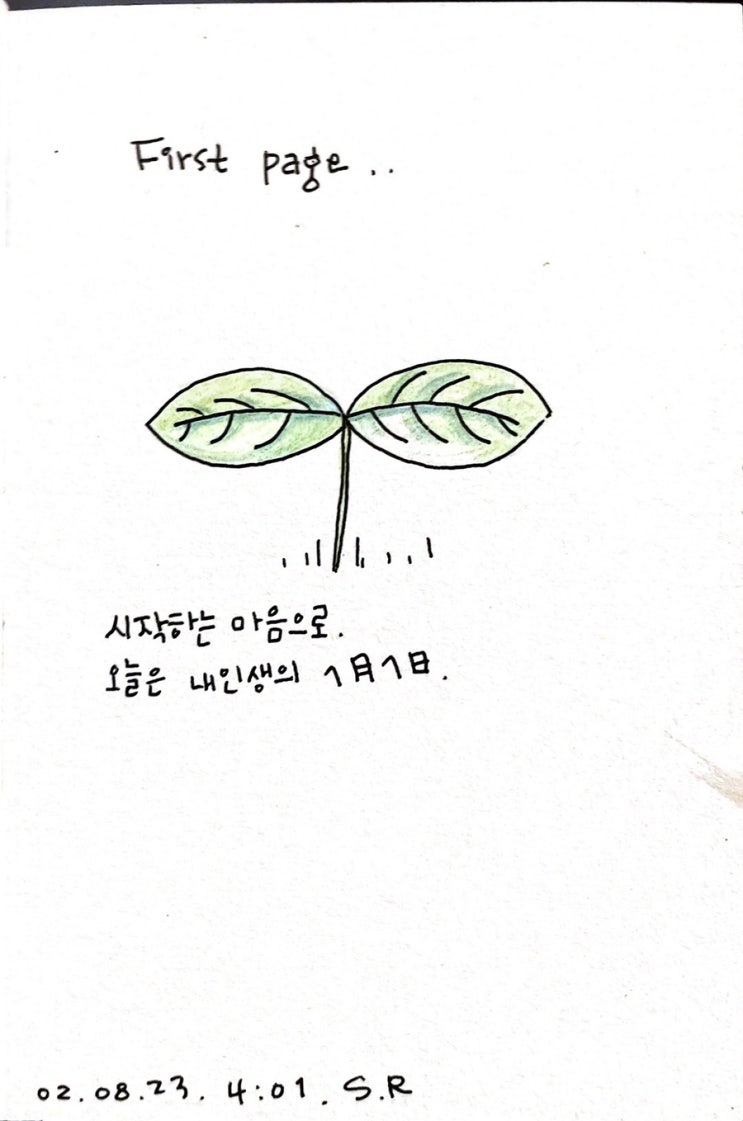 First page..
시작하는 마음으로.
오늘은 내인생의 1月1日.
02.08.23. 4:01. S.R